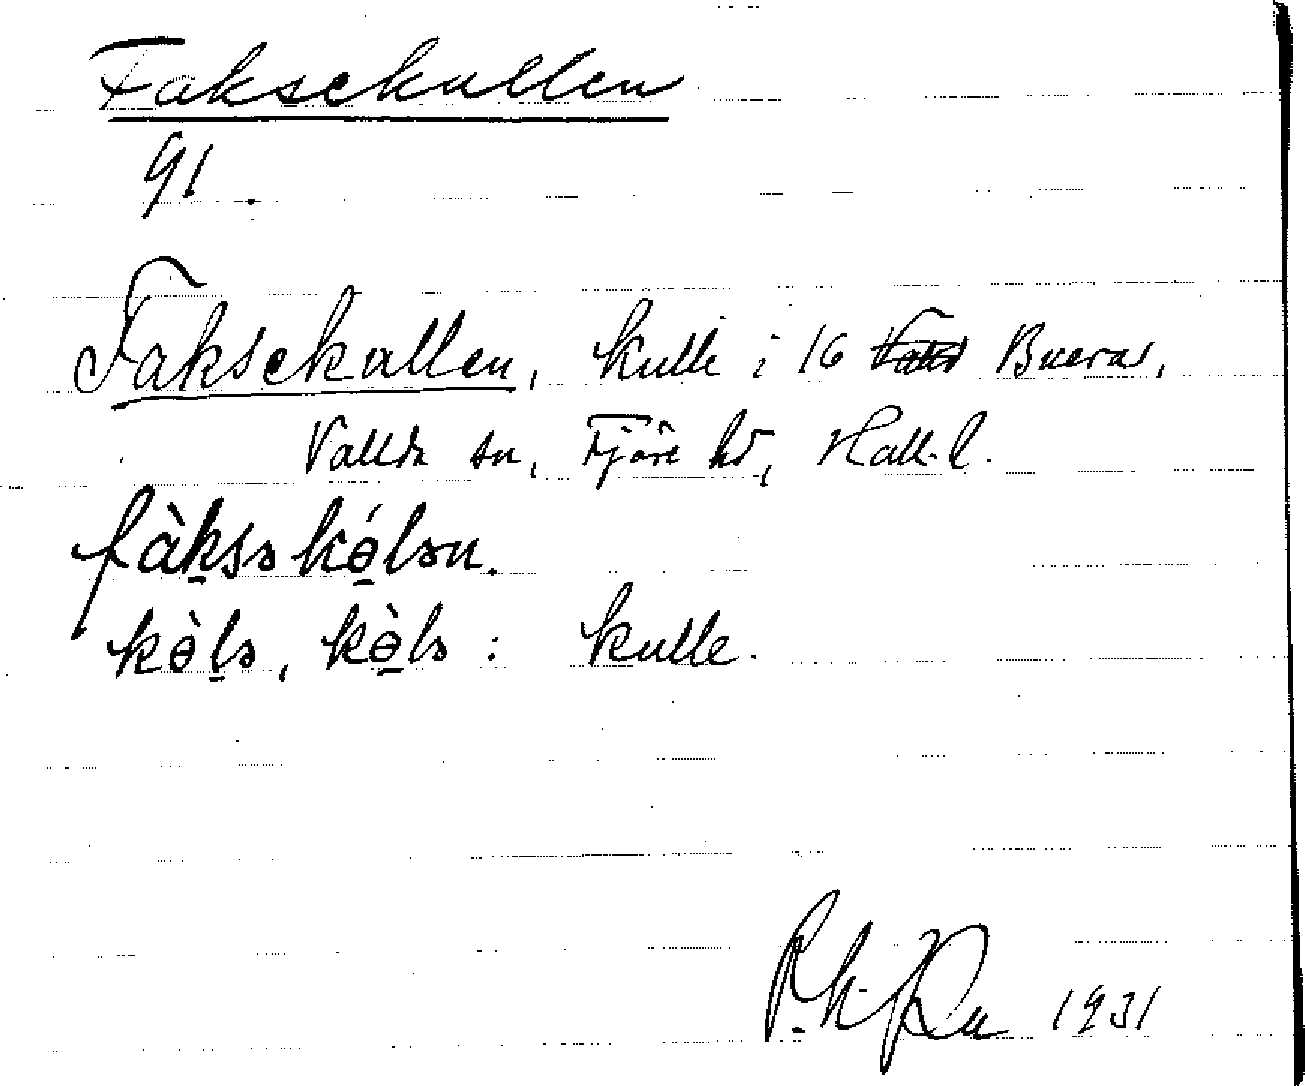 Faksekullen
91.
Faksekullen, kulle i 16 Buera,
Vallda sn, Fjäre hd, Hall. l.
fàksəkə́lən.
kə̀lə, kə̀lə: kulle.
1931